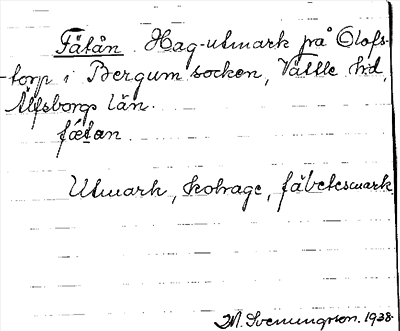 Fätån. Hag-utmark på Olofs-
-torp i Bergum socken, Vättle hd,
Älfsborgs län.
fǽtan.
Utmark, kohage, fäbetesmark
M. Svenungson. 1938.